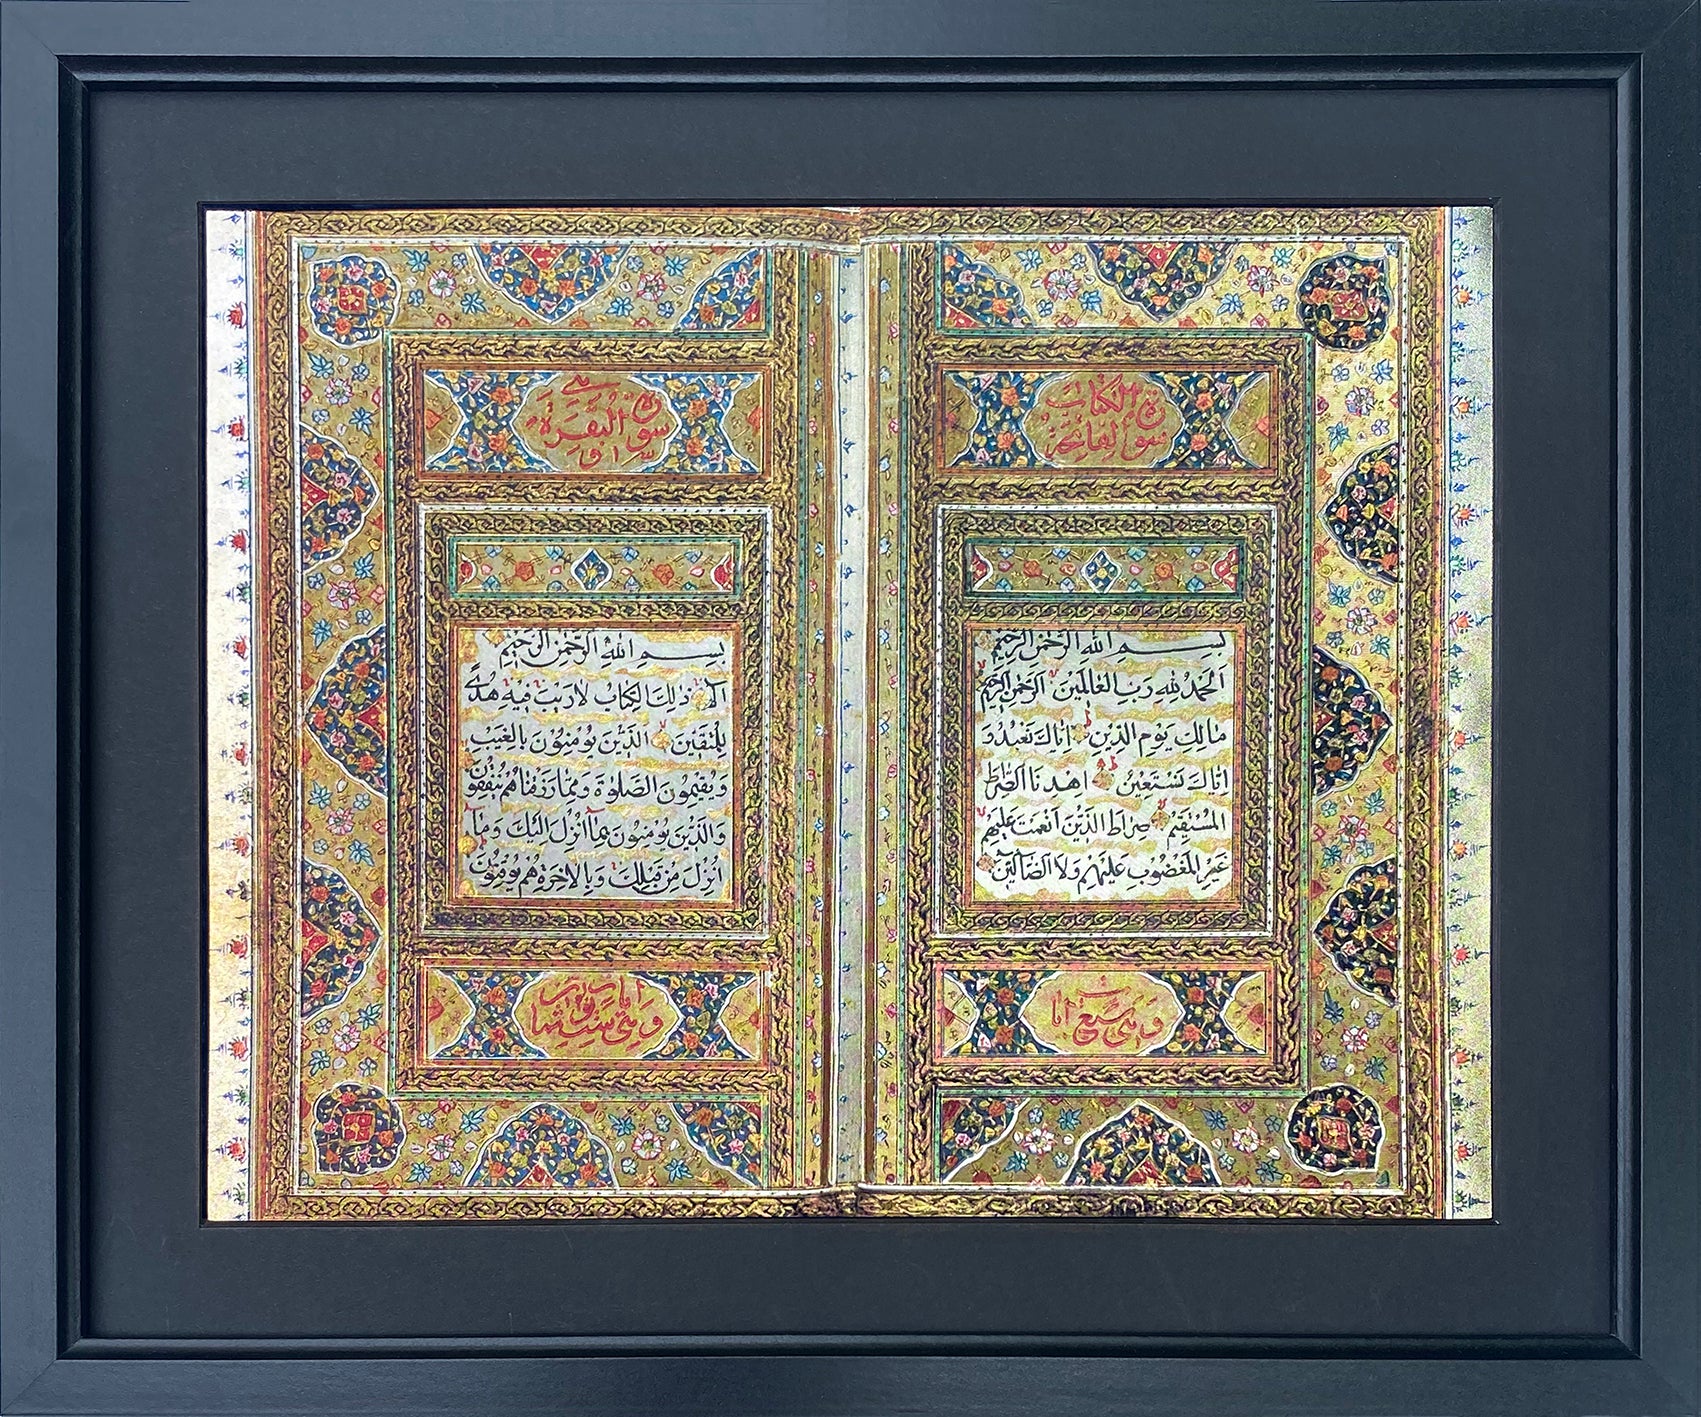 سورة فاتحة
الكتاب
بسم الله الرحمن الرحيم
الحمد لله رب العالمين الرحمن الرحيم
مالك يوم الدين اياك نعبد و
اياك نستعين اهدنا الصراط
المستقيم صراط الذين انعمت عليهم
غير المغضوب عليهم ولا الضالين
وهي سبع ايات
سورة البقرة
بسم الله الرحمن الرحيم
الم ذلك الكتاب لا ريب فيه هدى
للمتقين الذين يؤمنون بالغيب
ويقيمون الصلوة ومما رزقناهم ينفقون
والذين يؤمنون بما انزل اليك وما
انزل من قبلك وبالاخرة هم يوقنون